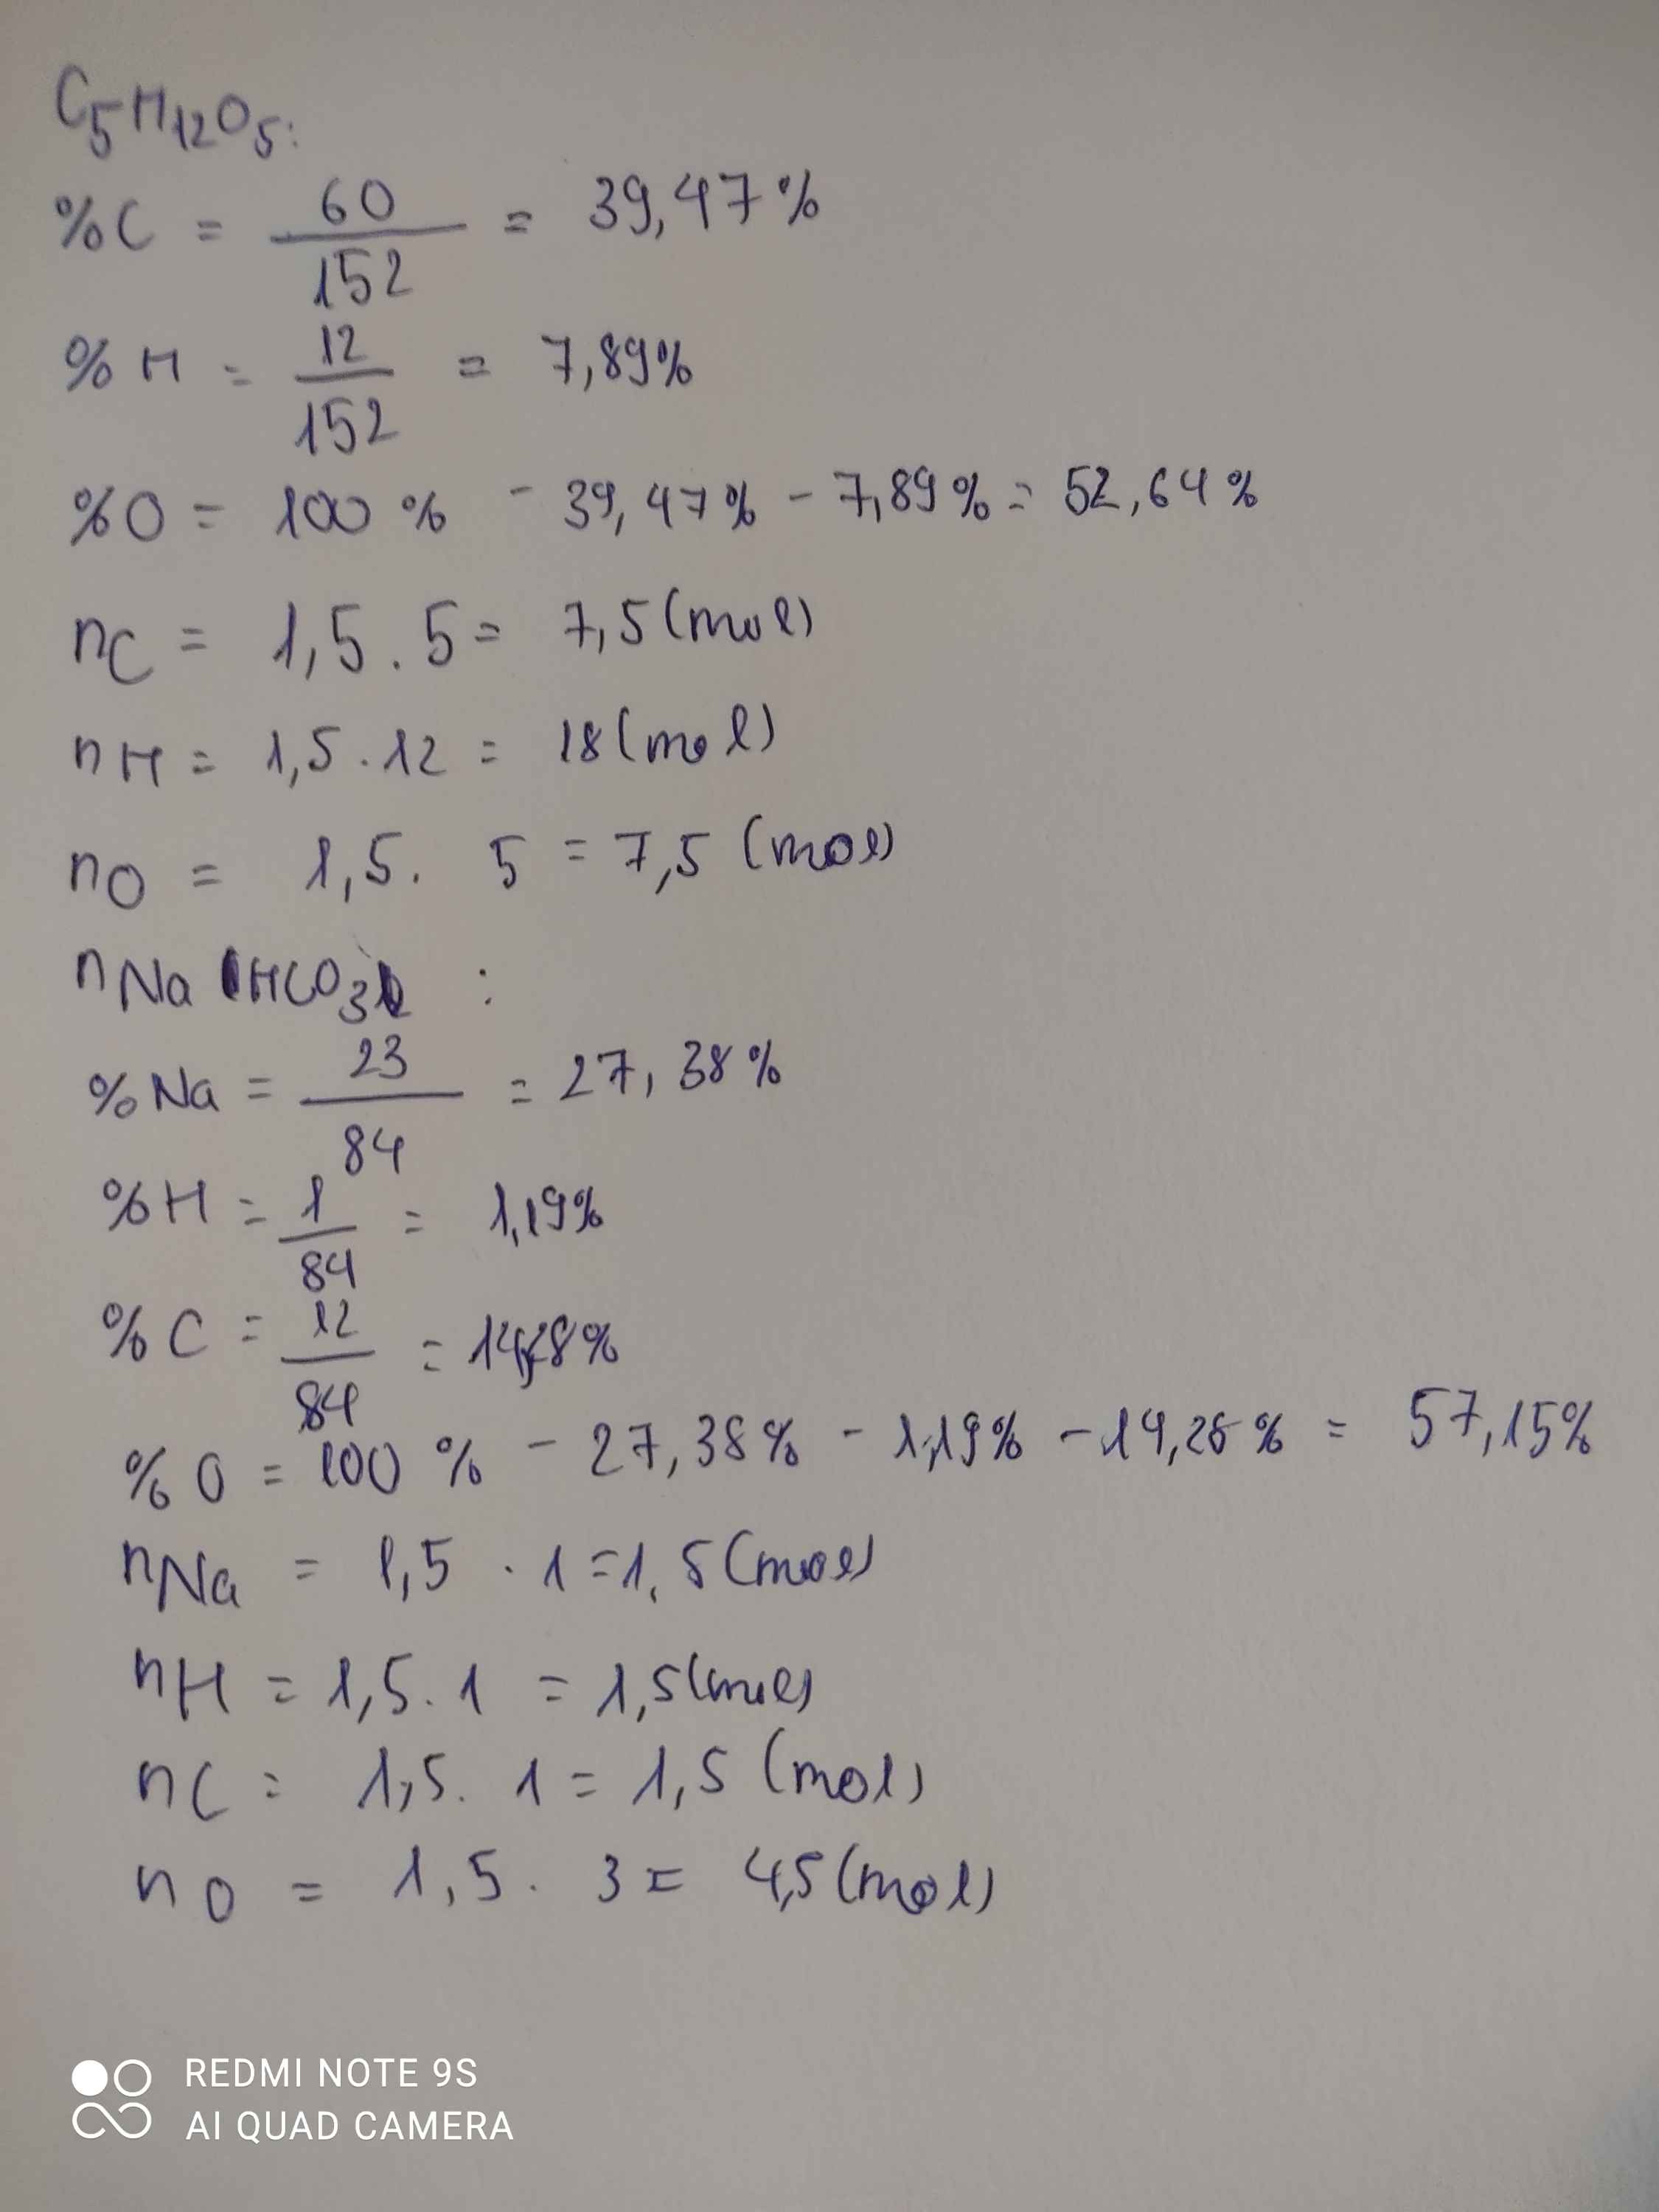 C5H12O5:
%C = 60/152 = 39,47%
%H = 12/152 = 7,89%
%O = 100% - 39,47% - 7,89% = 52,64%
nC = 1,5 . 5 = 7,5 (mol)
nH = 1,5 . 12 = 18 (mol)
nO = 1,5 . 5 = 7,5 (mol)
nNaHCO3 :
%Na = 23/84 = 27,38%
%H = 1/84 = 1,19%
%C = 12/84 = 14,28%
%O = 100% - 27,38% - 1,19% - 14,28% = 57,15%
nNa = 1,5 . 1 = 1,5 (mol)
nH = 1,5 . 1 = 1,5 (mol)
nC = 1,5 . 1 = 1,5 (mol)
nO = 1,5 . 3 = 4,5 (mol)
REDMI NOTE 9S
AI QUAD CAMERA